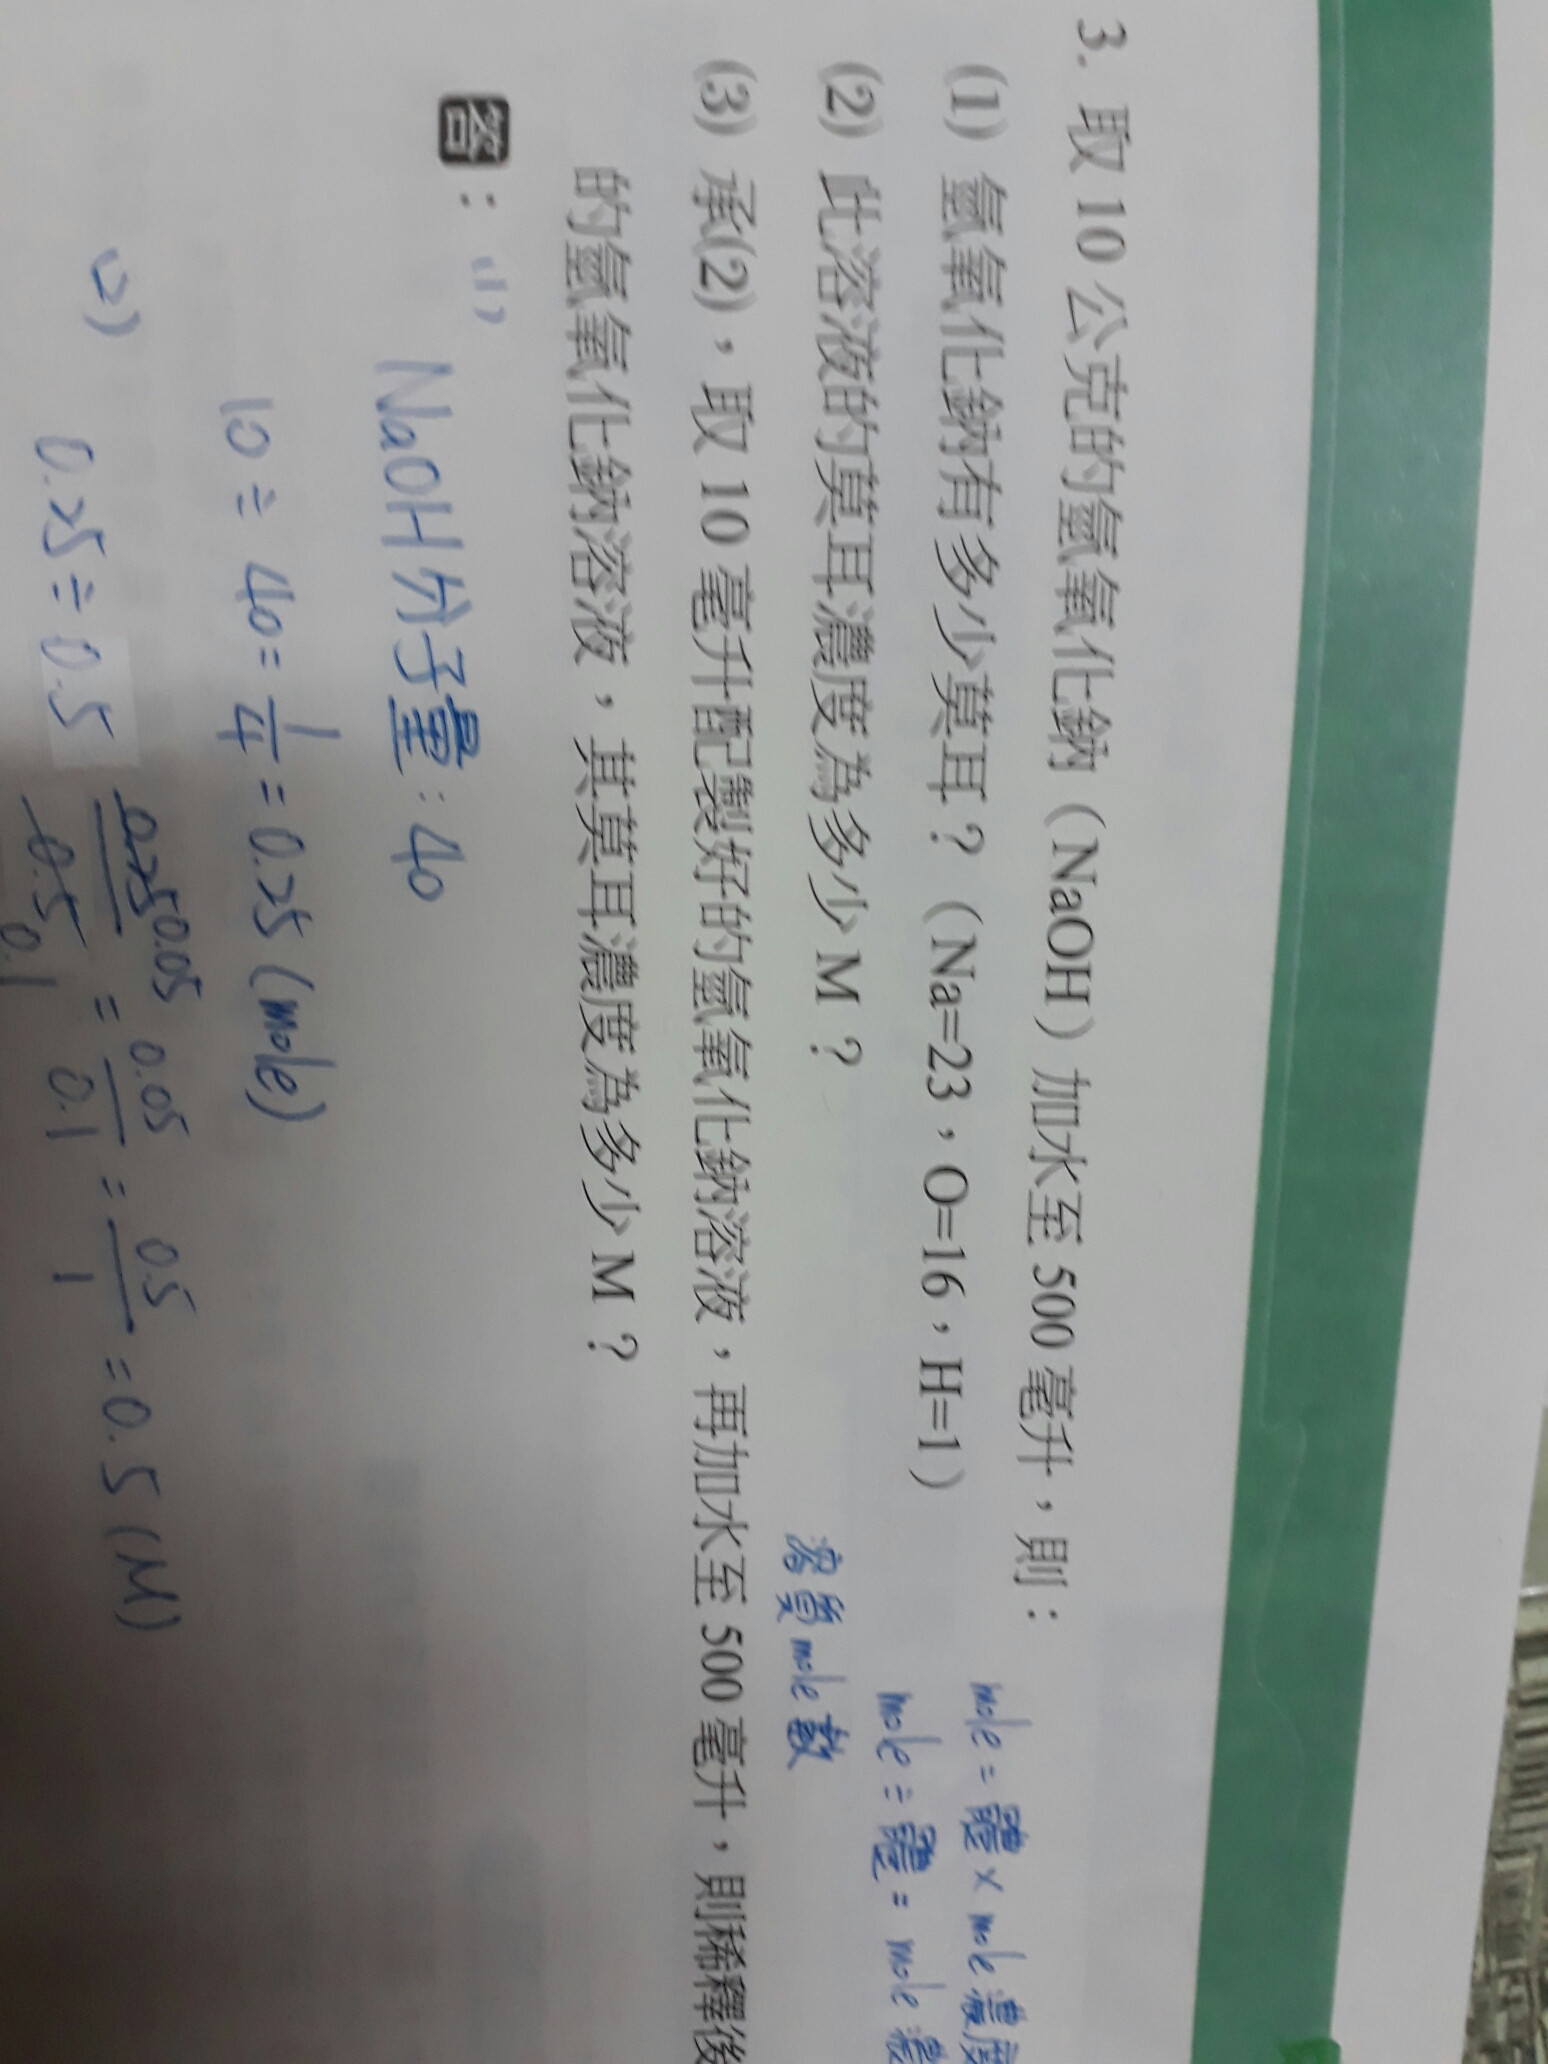 3. 取 10 公克的氫氧化鈉（NaOH）加水至 500 毫升，則：
(1) 氫氧化鈉有多少莫耳？（Na=23，O=16，H=1）
(2) 此溶液的莫耳濃度為多少 M？
(3) 承(2)，取 10 毫升配製好的氫氧化鈉溶液，再加水至 500 毫升，則稀釋後
的氫氧化鈉溶液，其莫耳濃度為多少 M？
mole = 體 × mole 濃度
mole ÷ 體 = mole 濃
溶質 mole 數
答：(1)
NaOH 分子量：40
10 ÷ 40 = 1/4 = 0.25 (mole)
(2)
0.25 ÷ 0.5
0.25 0.05
0.5 0.1
= 0.05/0.1 = 0.5/1 = 0.5 (M)